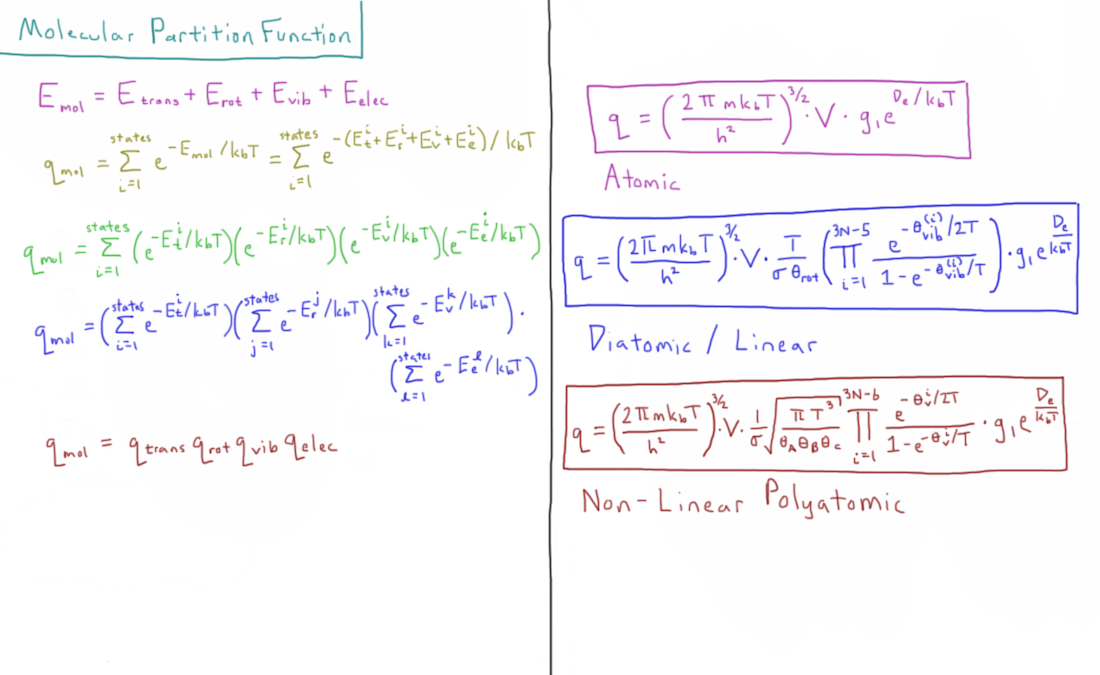 Molecular Partition Function
E_mol = E_trans + E_rot + E_vib + E_elec
q_mol = Σ_{i=1}^{states} e^{-E_mol/k_bT} = Σ_{i=1}^{states} e^{-(E_t^i+E_r^i+E_v^i+E_e^i)/k_bT}
q_mol = Σ_{i=1}^{states} (e^{-E_t^i/k_bT})(e^{-E_r^i/k_bT})(e^{-E_v^i/k_bT})(e^{-E_e^i/k_bT})
q_mol = (Σ_{i=1}^{states} e^{-E_t^i/k_bT})(Σ_{j=1}^{states} e^{-E_r^j/k_bT})(Σ_{k=1}^{states} e^{-E_v^k/k_bT}) ·
(Σ_{l=1}^{states} e^{-E_e^l/k_bT})
q_mol = q_trans q_rot q_vib q_elec
q = (2π m k_bT / h²)^{3/2} · V · g₁e^{D_e/k_bT}
Atomic
q = (2π m k_bT / h²)^{3/2} · V · T/(σ θ_rot) (Π_{i=1}^{3N-5} e^{-θ_vib^{(i)}/2T} / (1 - e^{-θ_vib^{(i)}/T})) · g₁e^{D_e/k_bT}
Diatomic / Linear
q = (2π m k_bT / h²)^{3/2} · V · 1/σ √(π T³ / θ_A θ_B θ_C) Π_{i=1}^{3N-6} e^{-θ_v^i/2T} / (1 - e^{-θ_v^i/T}) · g₁e^{D_e/k_bT}
Non-Linear Polyatomic